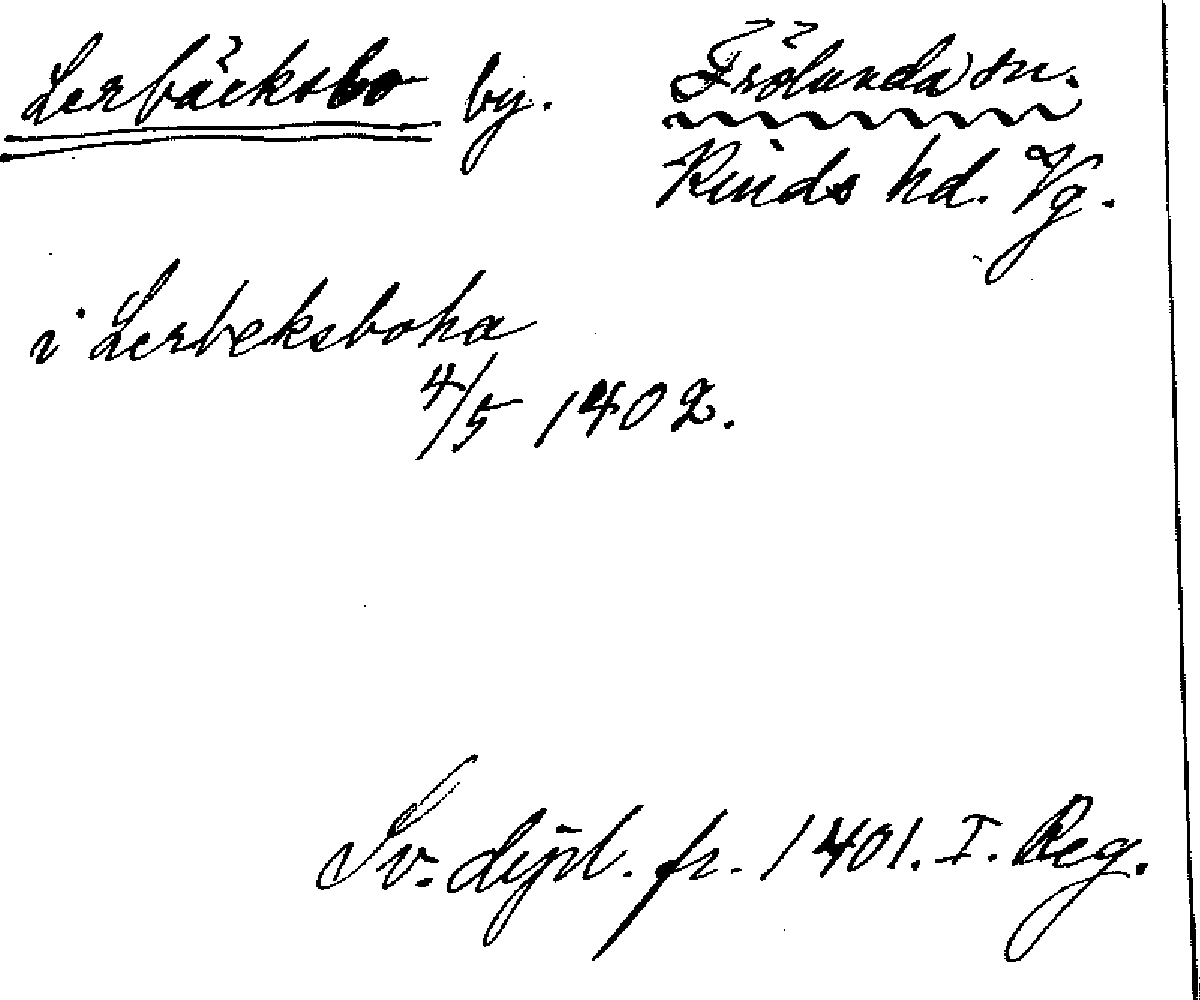 Lerbäcksbo by. Frölunda sn.
Kinds hd. Vg.
i Lerbeksboha
4/5 1402.
Sv. dipl. fr. 1401. I. Reg.